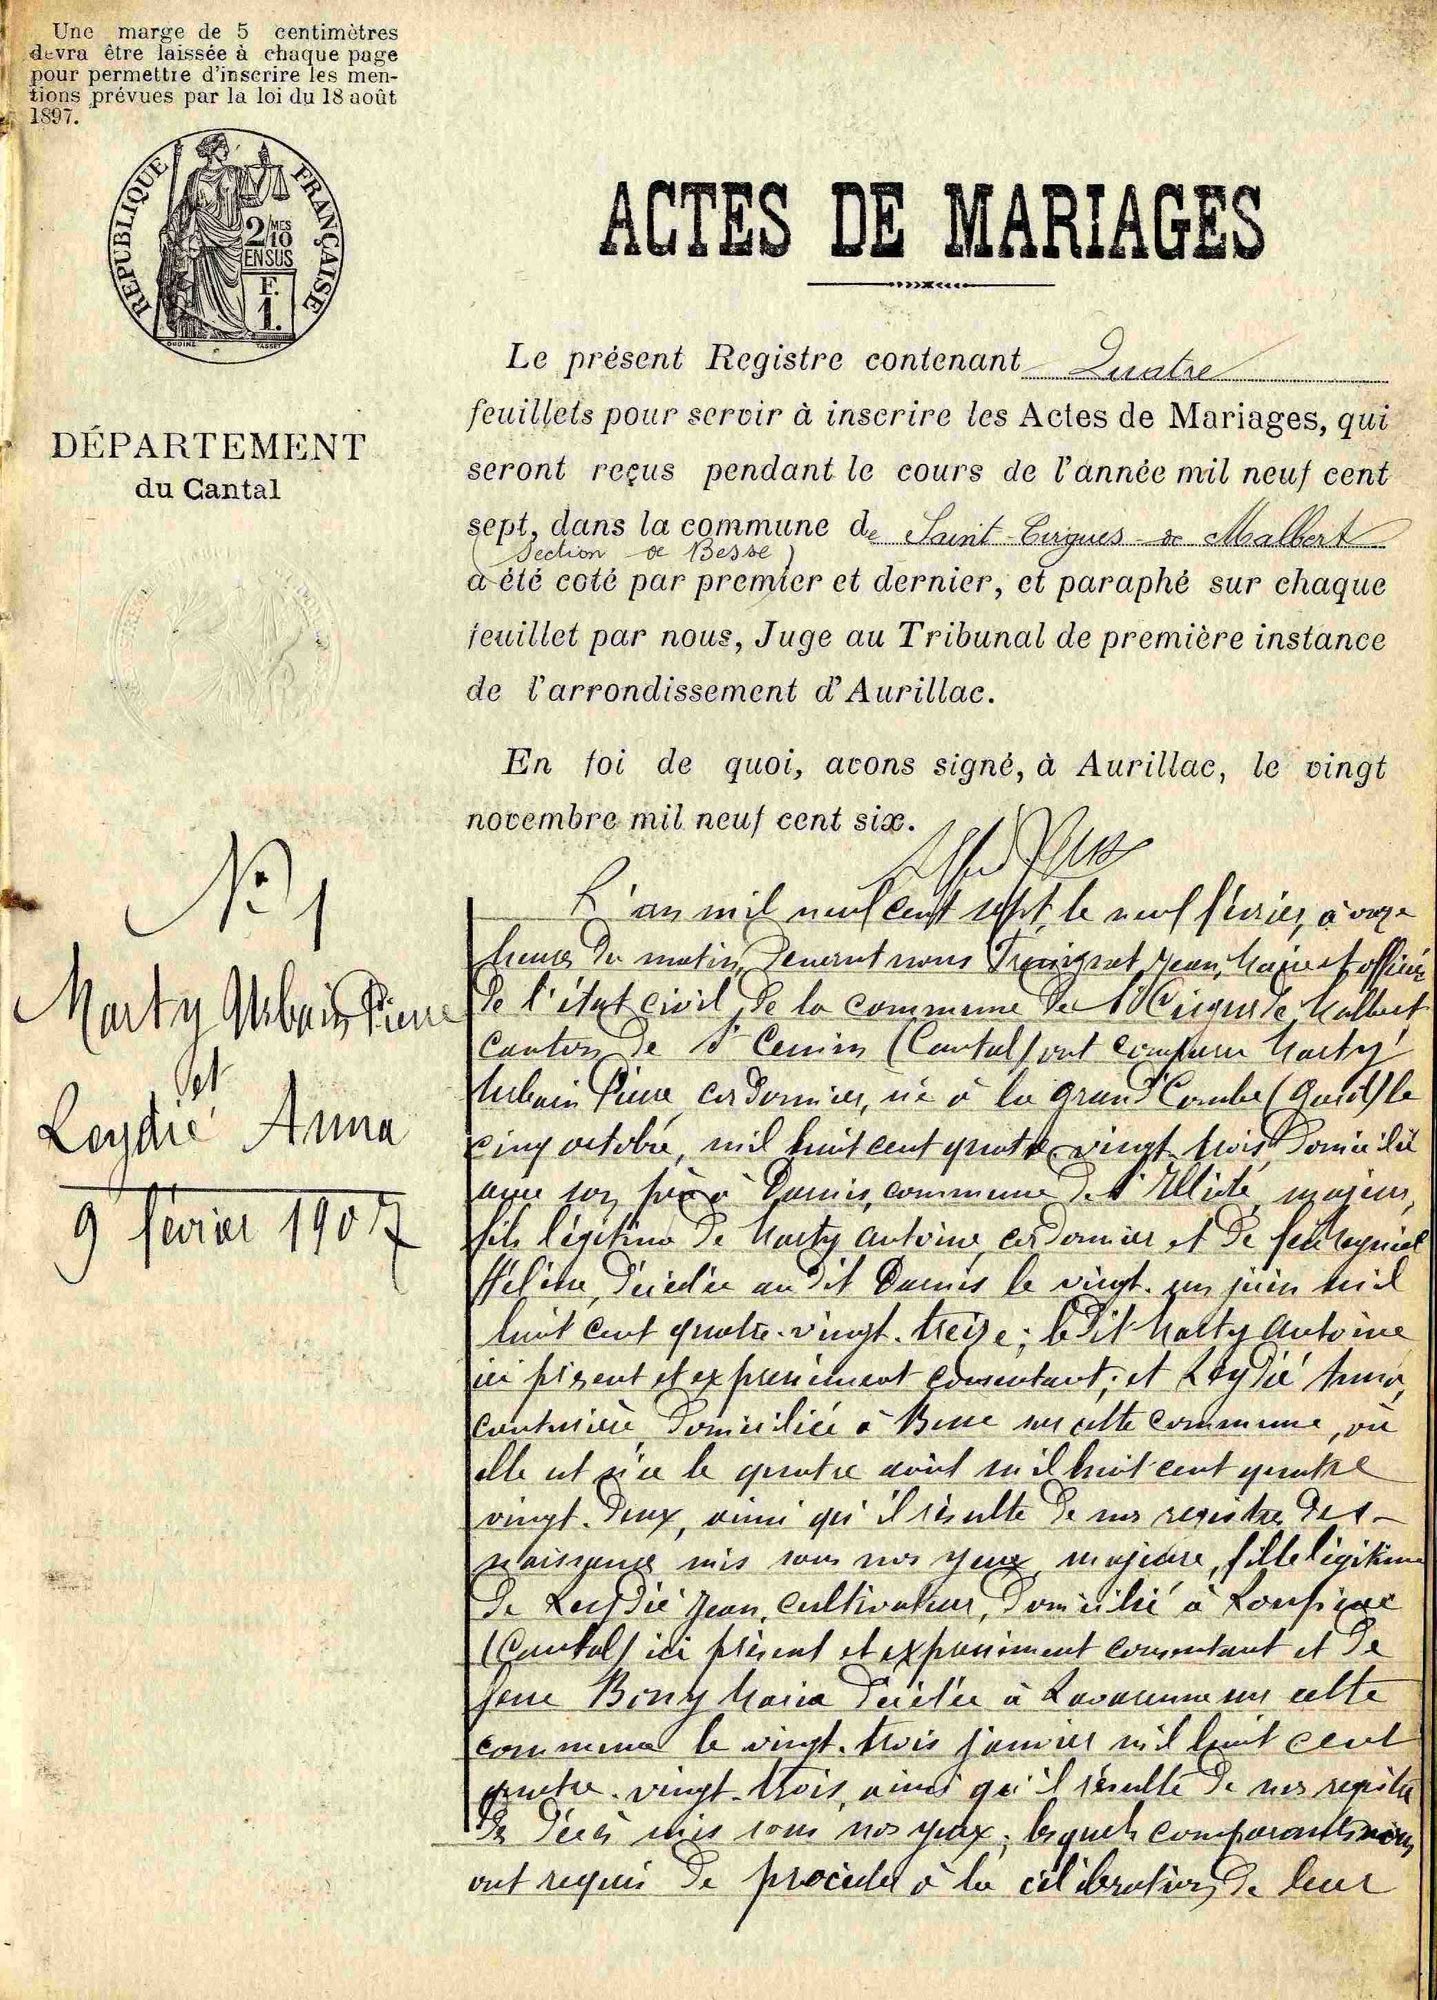 Une marge de 5 centimètres
devra être laissée à chaque page
pour permettre d'inscrire les men-
tions prévues par la loi du 18 août
1897.
RÉPUBLIQUE FRANÇAISE
2/MES
10
EN SUS
F.
1.
OUDINÉ TASSET
DÉPARTEMENT
du Cantal
N° 1
Marty Urbain Pierre
et
Leydié Anna
9 février 1907
ACTES DE MARIAGES
Le présent Registre contenant Quatre
feuillets pour servir à inscrire les Actes de Mariages, qui
seront reçus pendant le cours de l'année mil neuf cent
sept, dans la commune de Saint-Cirgues-de Malbert
(Section de Besse)
a été coté par premier et dernier, et paraphé sur chaque
feuillet par nous, Juge au Tribunal de première instance
de l'arrondissement d'Aurillac.
En foi de quoi, avons signé, à Aurillac, le vingt
novembre mil neuf cent six.
L'an mil neuf cent sept, le neuf février, à onze
heures du matin, devant nous Jean, Maire et officier
de l'état civil de la commune de St Cirgues de Malbert
canton de St Cernin (Cantal) ont comparu Marty
Urbain Pierre, cordonnier, né à la Grand'Combe (Gard) le
cinq octobre, mil huit cent quatre-vingt-trois domicilié
avec son père à Darnis, commune de St Illide, majeur,
fils légitime de Marty Antoine, cordonnier et de feue
Hélène, décédée audit Darnis le vingt-un juin mil
huit cent quatre-vingt-treize; ledit Marty Antoine
ici présent et expressément consentant; et Leydié Anna,
couturière domiciliée à Besse sur cette commune, où
elle est née le quatre août mil huit cent quatre
vingt-deux, ainsi qu'il résulte de nos registres des
naissances mis sous nos yeux, majeure, fille légitime
de Leydié Jean, cultivateur, domicilié à Loupiac
(Cantal) ici présent et expressément consentant et de
feue Bony Maria décédée à sur cette
commune le vingt-trois janvier mil huit cent
quatre-vingt-trois, ainsi qu'il résulte de nos registres
de décès mis sous nos yeux; lesquels comparants nous
ont requis de procéder à la célébration de leur